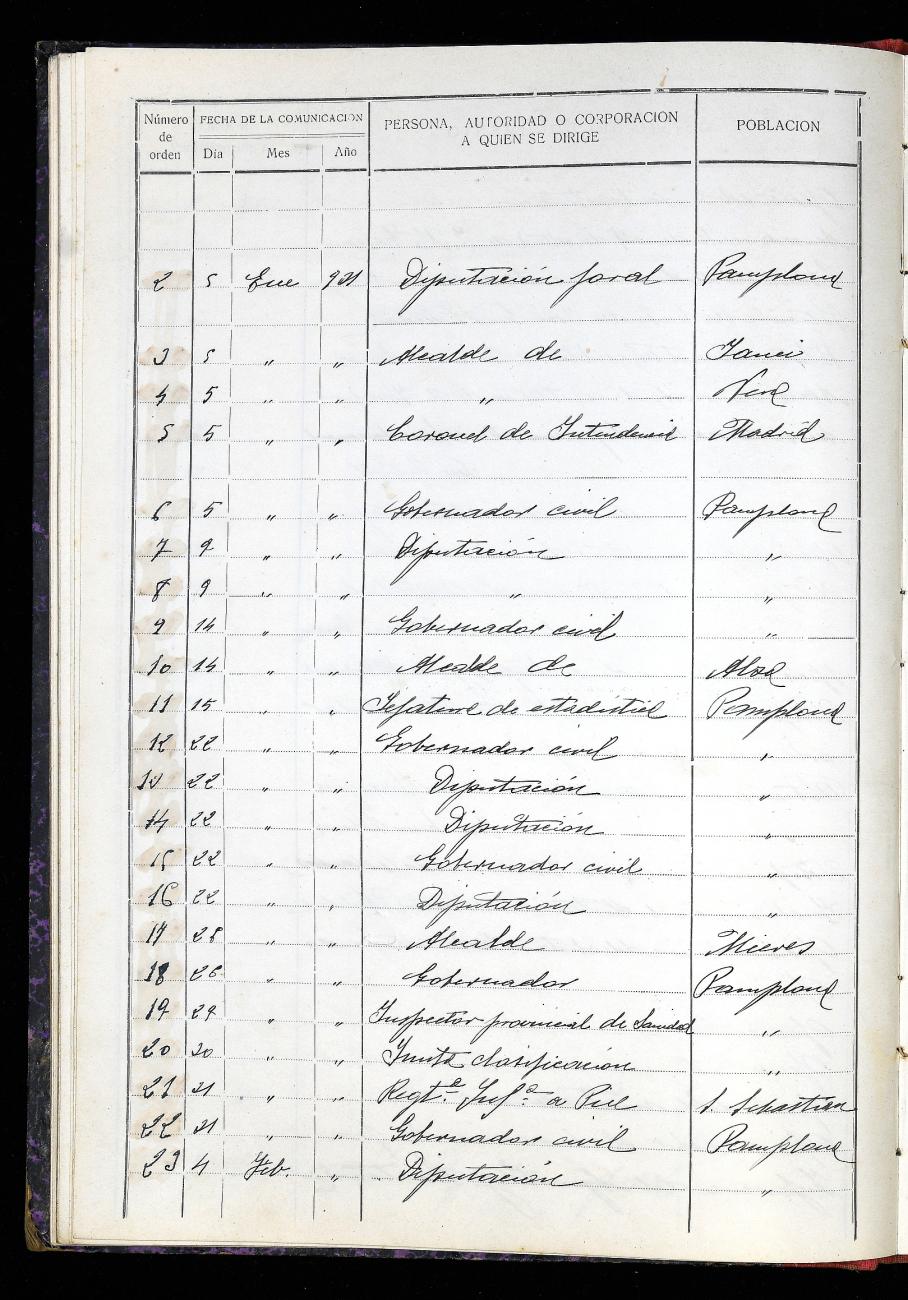 Número de orden FECHA DE LA COMUNICACION PERSONA, AUTORIDAD O CORPORACION A QUIEN SE DIRIGE POBLACION
Día Mes Año
2 5 Ene 931 Diputación foral Pamplona
3 5 " " Alcalde de Yanci
4 5 " " " Vera
5 5 " " Coronel de Intendencia Madrid
6 5 " " Gobernador civil Pamplona
7 9 " " Diputación "
8 9 " " " "
9 14 " " Gobernador civil "
10 14 " " Alcalde de Alza
11 15 " " Jefatura de estadistica Pamplona
12 22 " " Gobernador civil "
13 22 " " Diputación "
14 22 " " Diputación "
15 22 " " Gobernador civil "
16 22 " " Diputación "
17 28 " " Alcalde Mieres
18 28 " " Gobernador Pamplona
19 29 " " Inspector provincial de Sanidad "
20 30 " " Junta clasificación "
21 31 " " Regtº Infª a Pie S. Sebastian
22 31 " " Gobernador civil Pamplona
23 4 Feb. " Diputación "